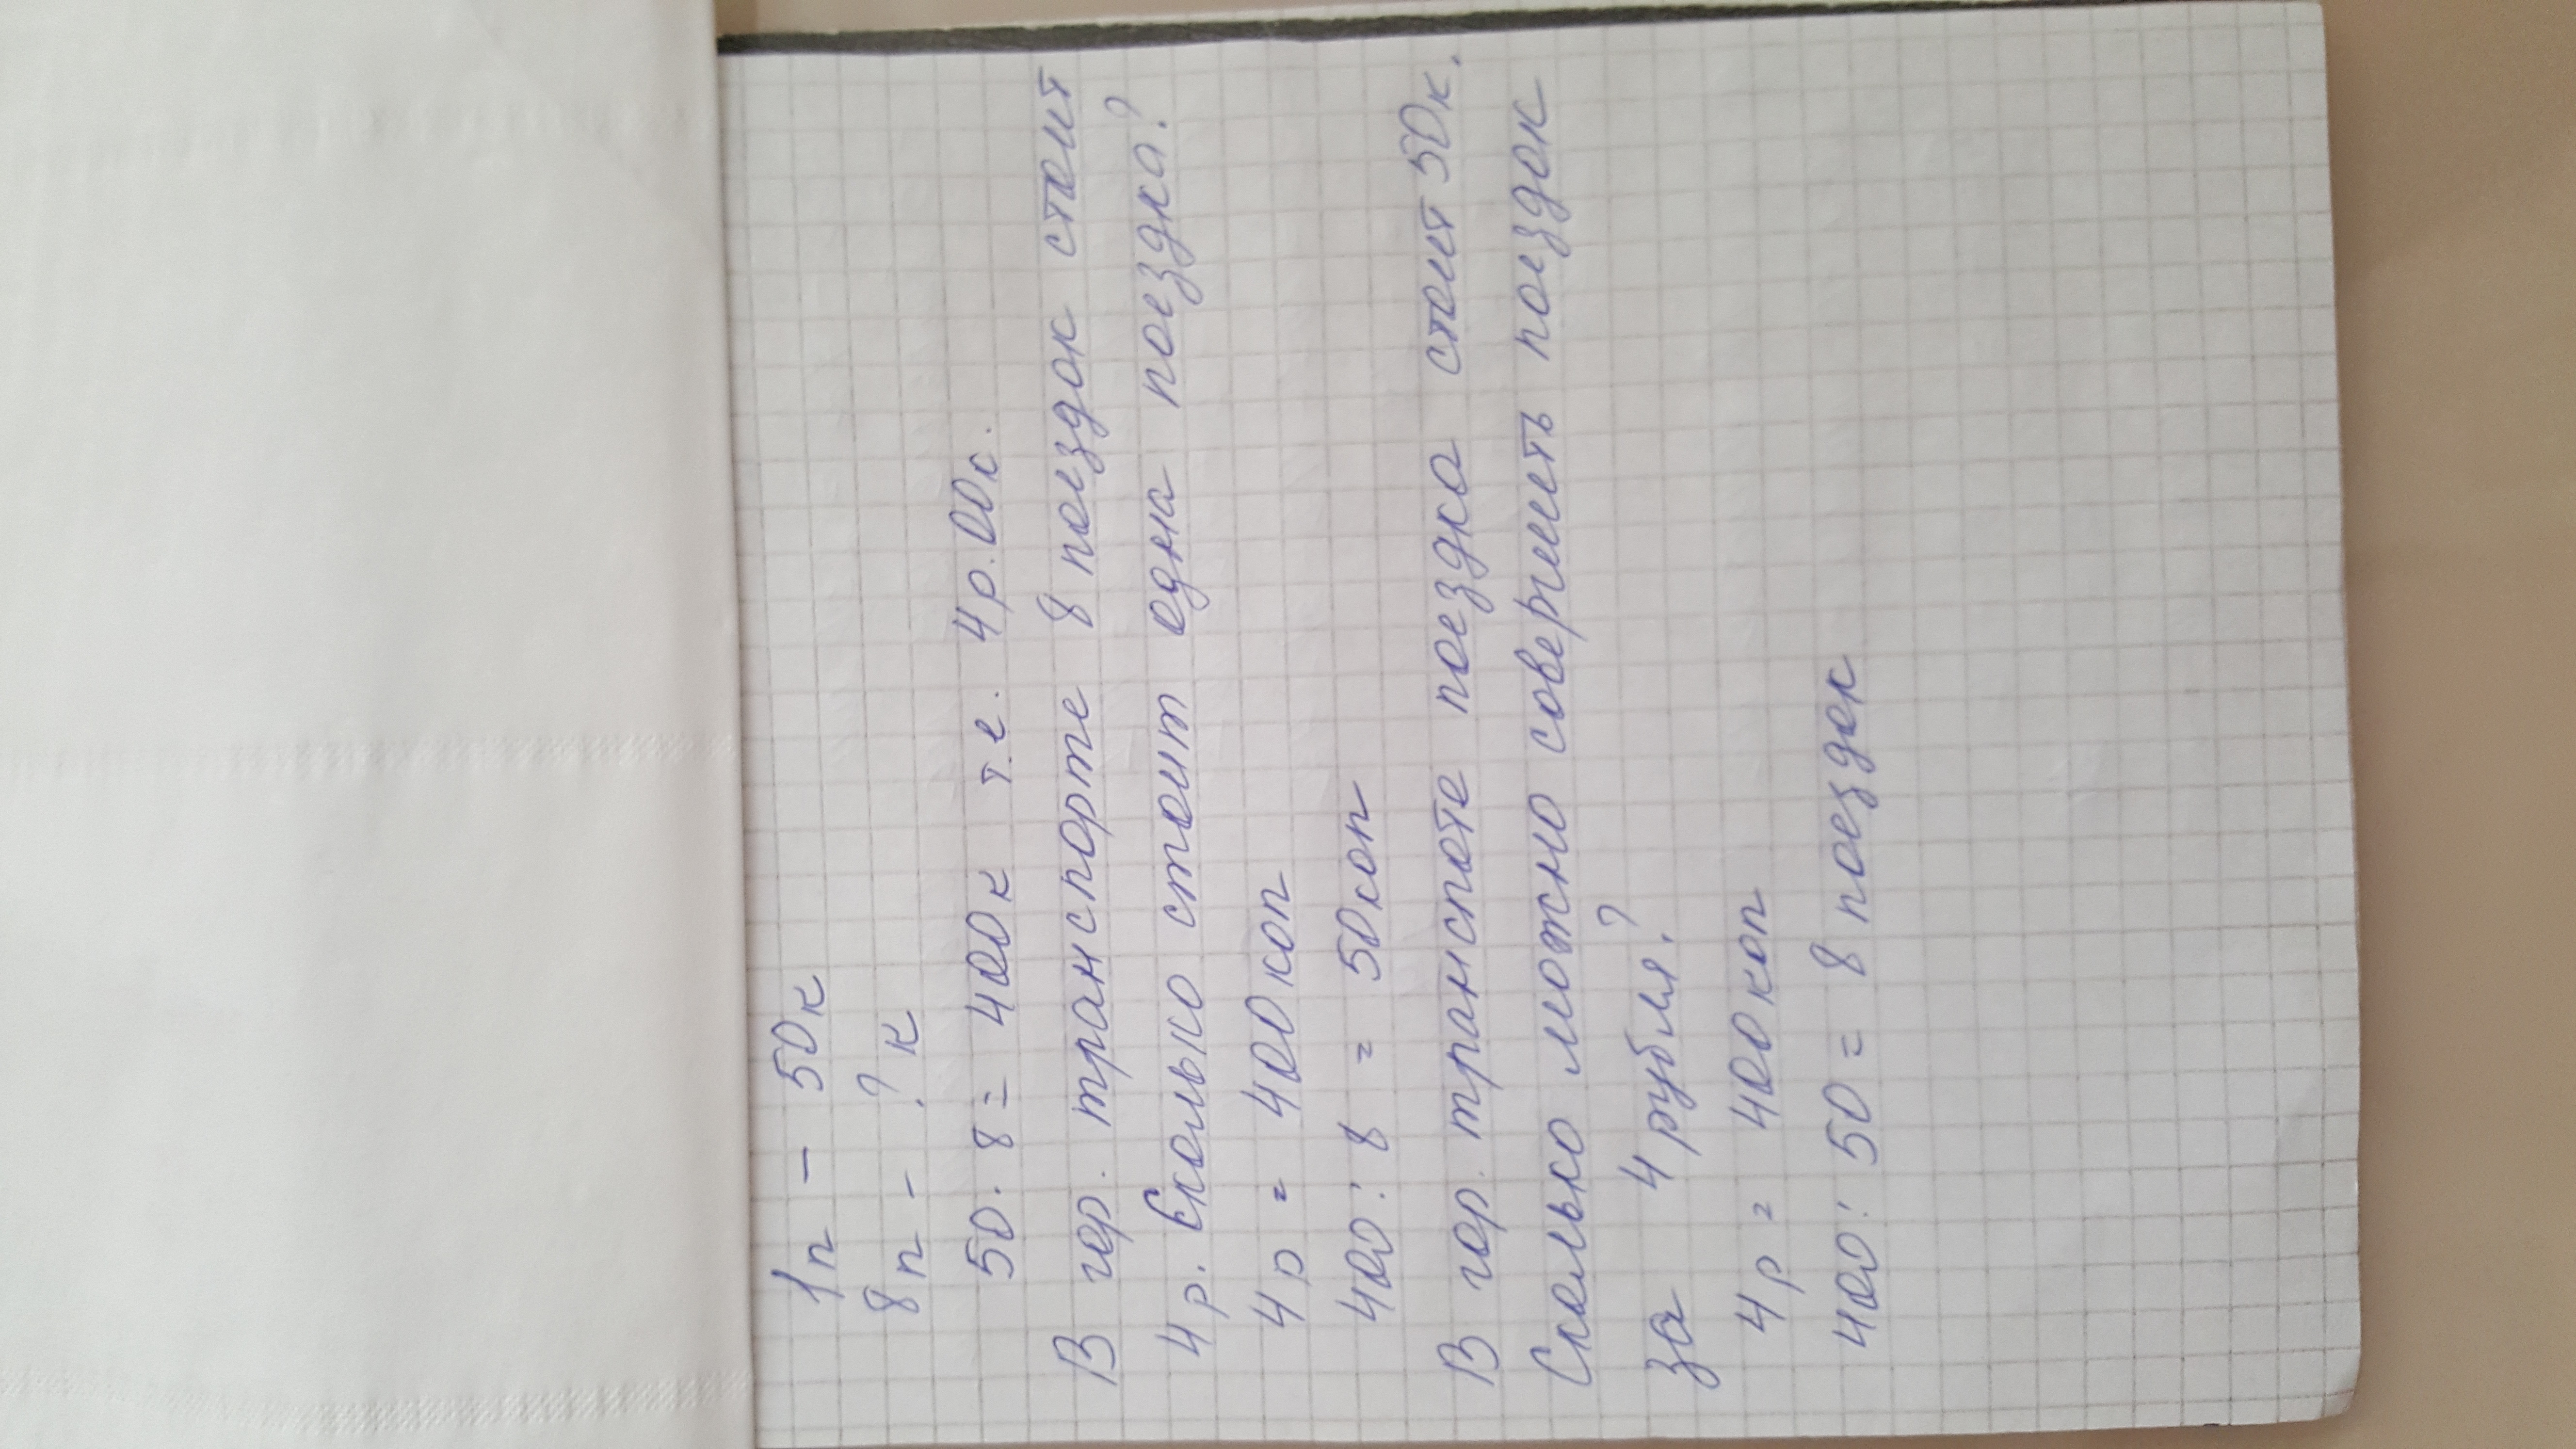 1п - 50к
8п - ? к
50 · 8 = 400к т.е. 4р.00к.
В гор. транспорте 8 поездок стоит
4р. Сколько стоит одна поездка?
4р = 400коп
400 : 8 = 50коп
В гор. транспоте поездка стоит 50к.
Сколько можно совершить поездок
за 4 рубля?
4р = 400коп
400 : 50 = 8 поездок